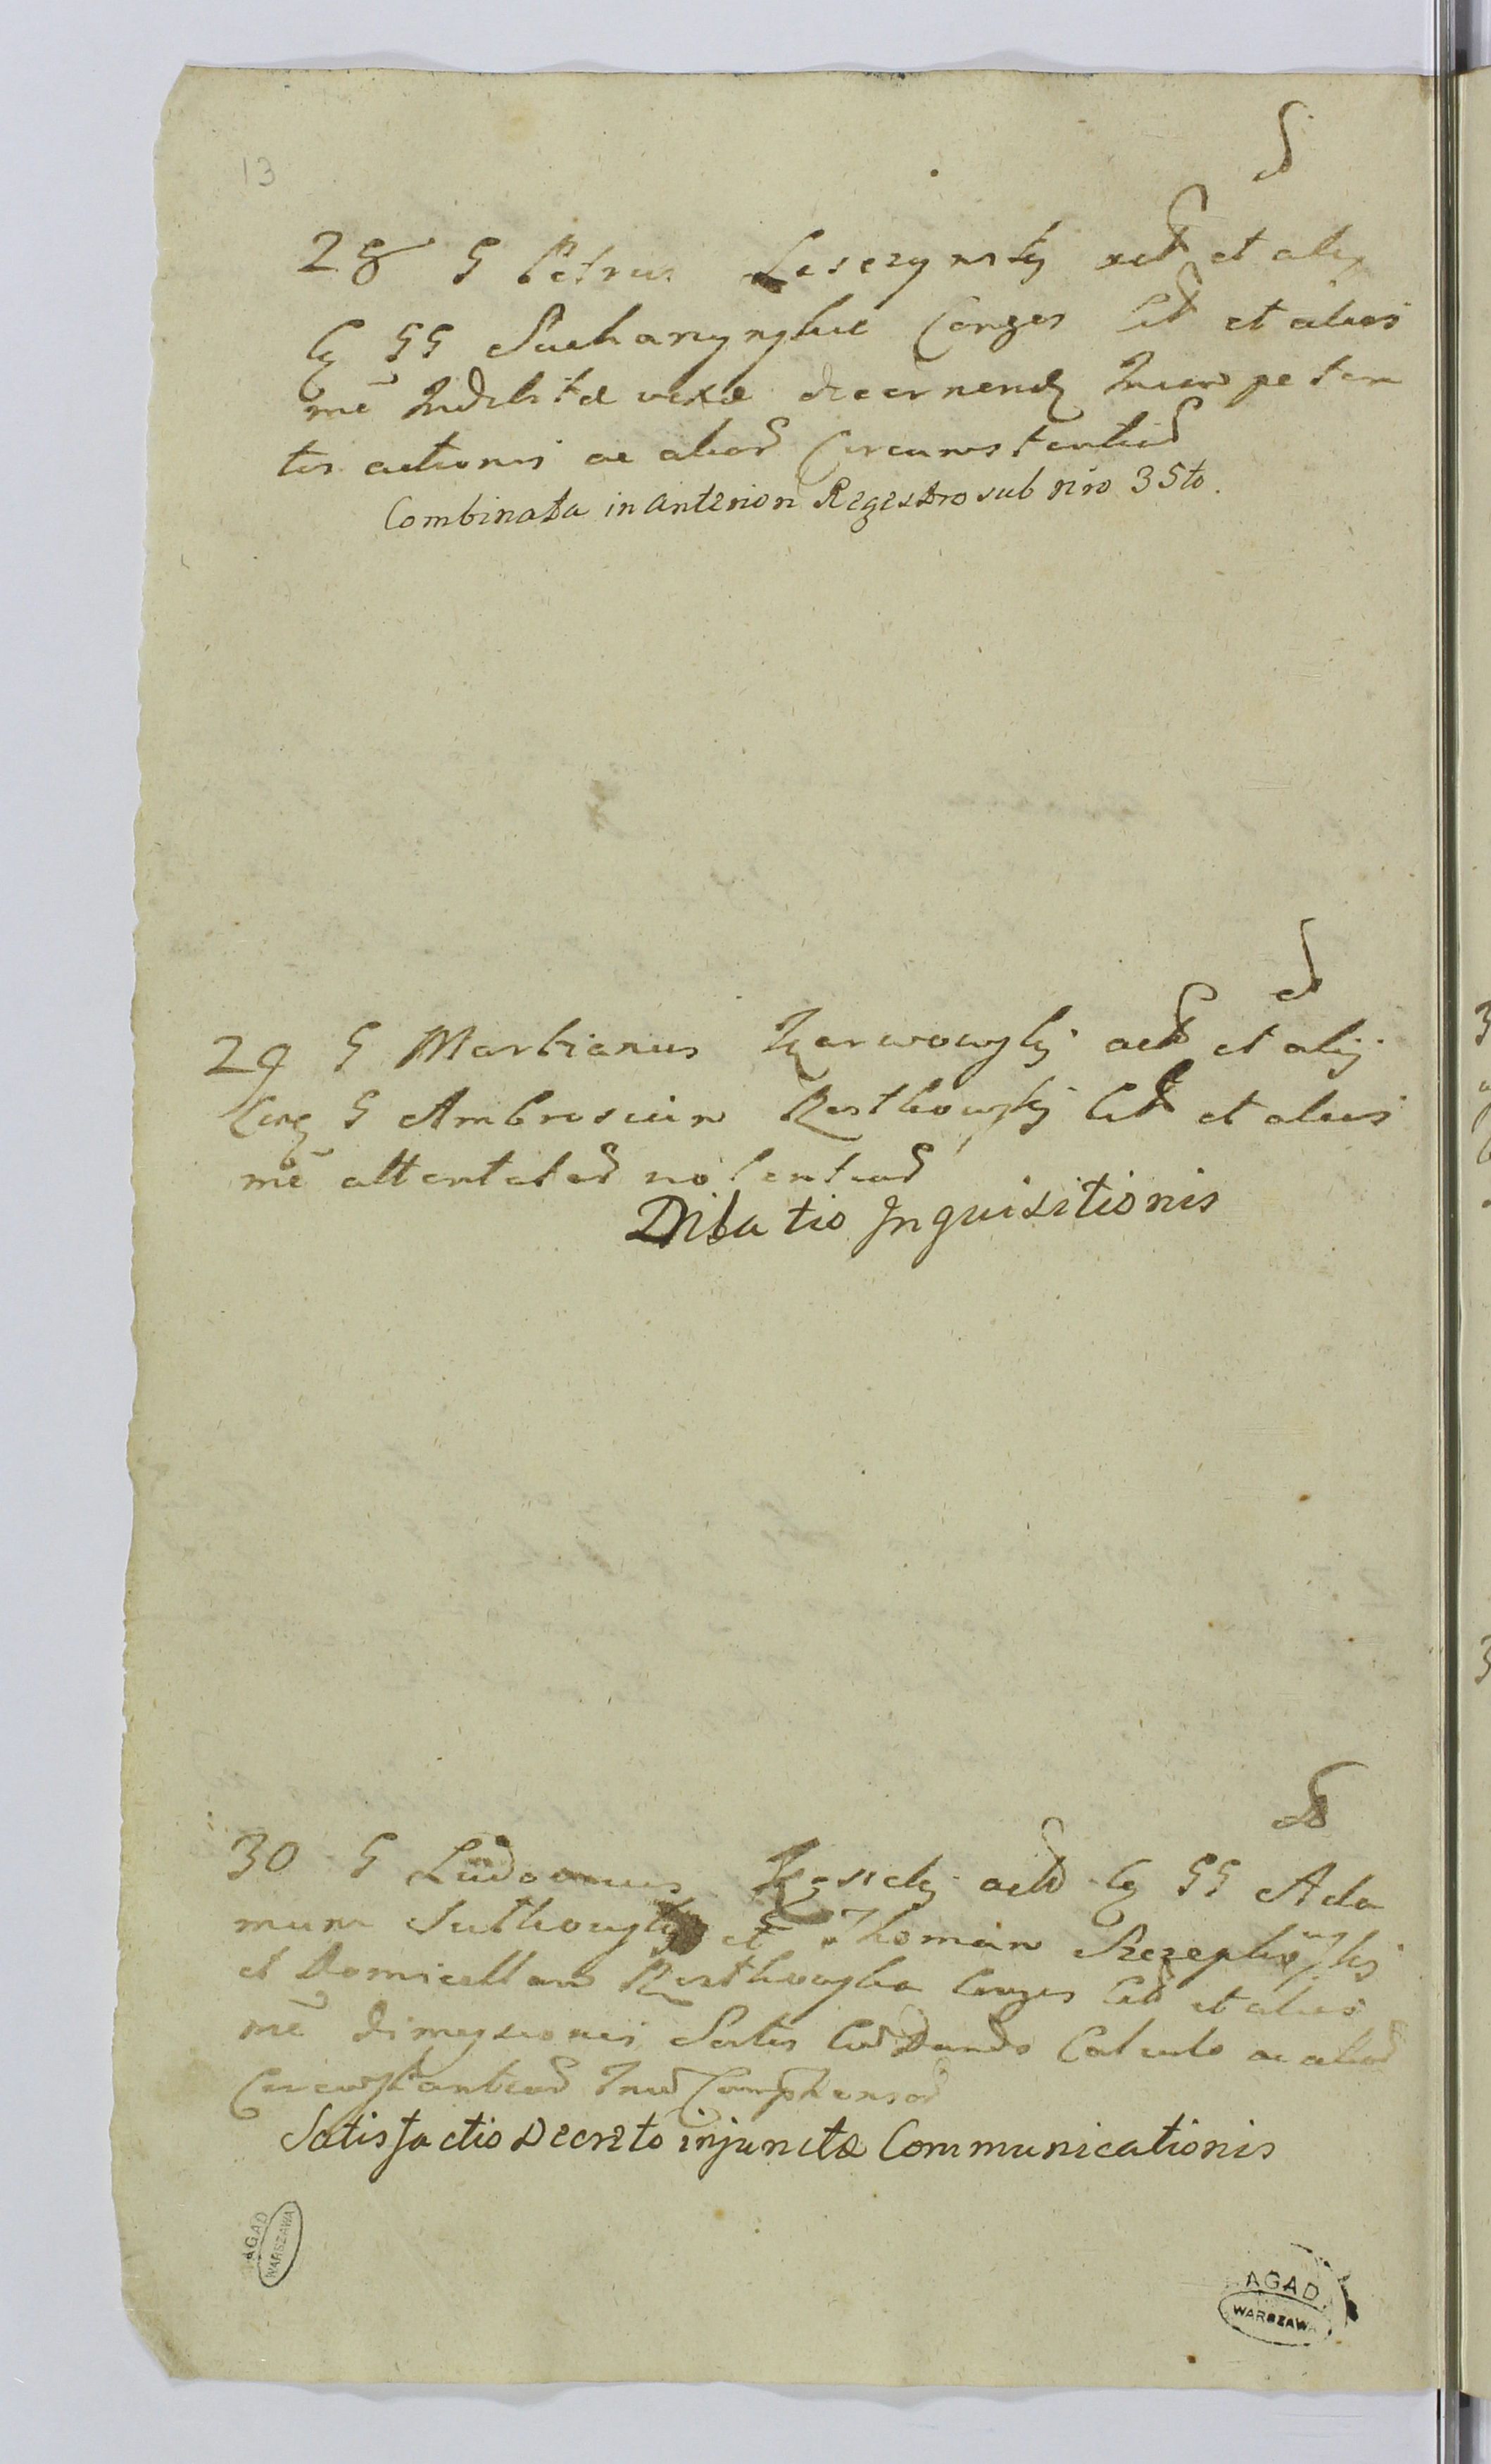 13
28 G Petrus Leszczynsky act et alij
Cq GG Conges Cit et alios
mē Indebitæ vexæ decernend Incompeten
tis actionis ac aliar Circumstantiar
Combinata in anterion Regestro sub nro 35to.
29 G Martianus Karwowsky act et alij
Cong G Ambrosium Rostkowsky Cit et alios
mē attentatar violentiar
Dilatio Inquisitionis
30 G Ludovicus act Cq GG Ada
mum Sutkowsky et Thomam
et Domicellam Rostkowska Conges Cit et alios
mē dimissionis Sortis Calculo ac aliar
Circumstantiar
Satisfactio Decreto injunctæ Communicationis
AGAD
WARSZAWA
AGAD
WARSZAWA